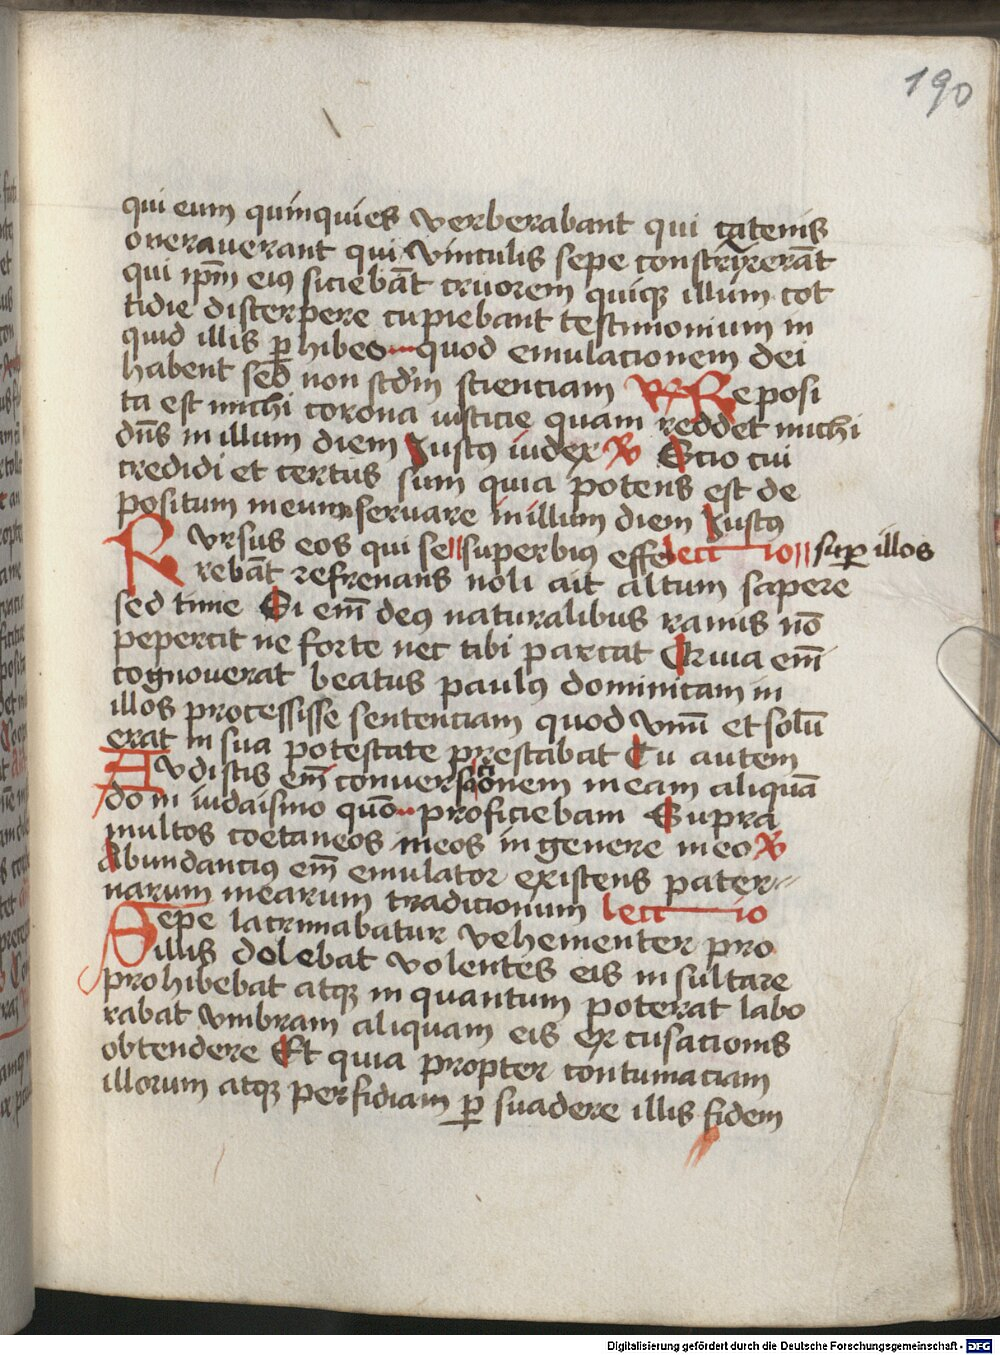 190
qui eum quinquies verberabant qui catenis
oneraverant qui vinculis sepe constrixerāt
qui ip̄m eiꝰ siciebāt cruorem quiqꝫ illum cot
tidie discerpere cupiebant testimonium in
quid illis ꝑhibeo quod emulacionem dei
habent sed non scd̄m scienciam Reposi
ta est michi corona iusticie quam reddet michi
dn̄s in illum diem Iustꝰ iudex ℟ Scio cui
credidi et certus sum quia potens est de
positum meum servare in illum diem Iustꝰ
Rursus eos qui se superbiꝰ effe lectio suꝑ illos
rebāt refrenans noli ait altum sapere
sed time Si em̄ deꝰ naturalibus ramis nō
pepercit ne forte nec tibi parcat Quia em̄
cognoverat beatus paulꝰ dominicam in
illos processisse sentenciam quod vnū et solū
erat in sua potestate prestabat Tu autem
Audistis em̄ conversacionem meam aliquā
do in iudaismo quō proficiebam Supra
multos coetaneos meos in genere meo ℟
Abundanciꝰ em̄ emulator existens pater
narum mearum tradicionum lectio
Sepe lacrimabatur vehementer pro
illis dolebat volentes eis insultare
prohibebat atqꝫ in quantum poterat labo
rabat vmbram aliquam eis excusacionis
obtendere Et quia propter contumaciam
illorum atqꝫ perfidiam ꝑsuadere illis fidem
Digitalisierung gefördert durch die Deutsche Forschungsgemeinschaft - DFG